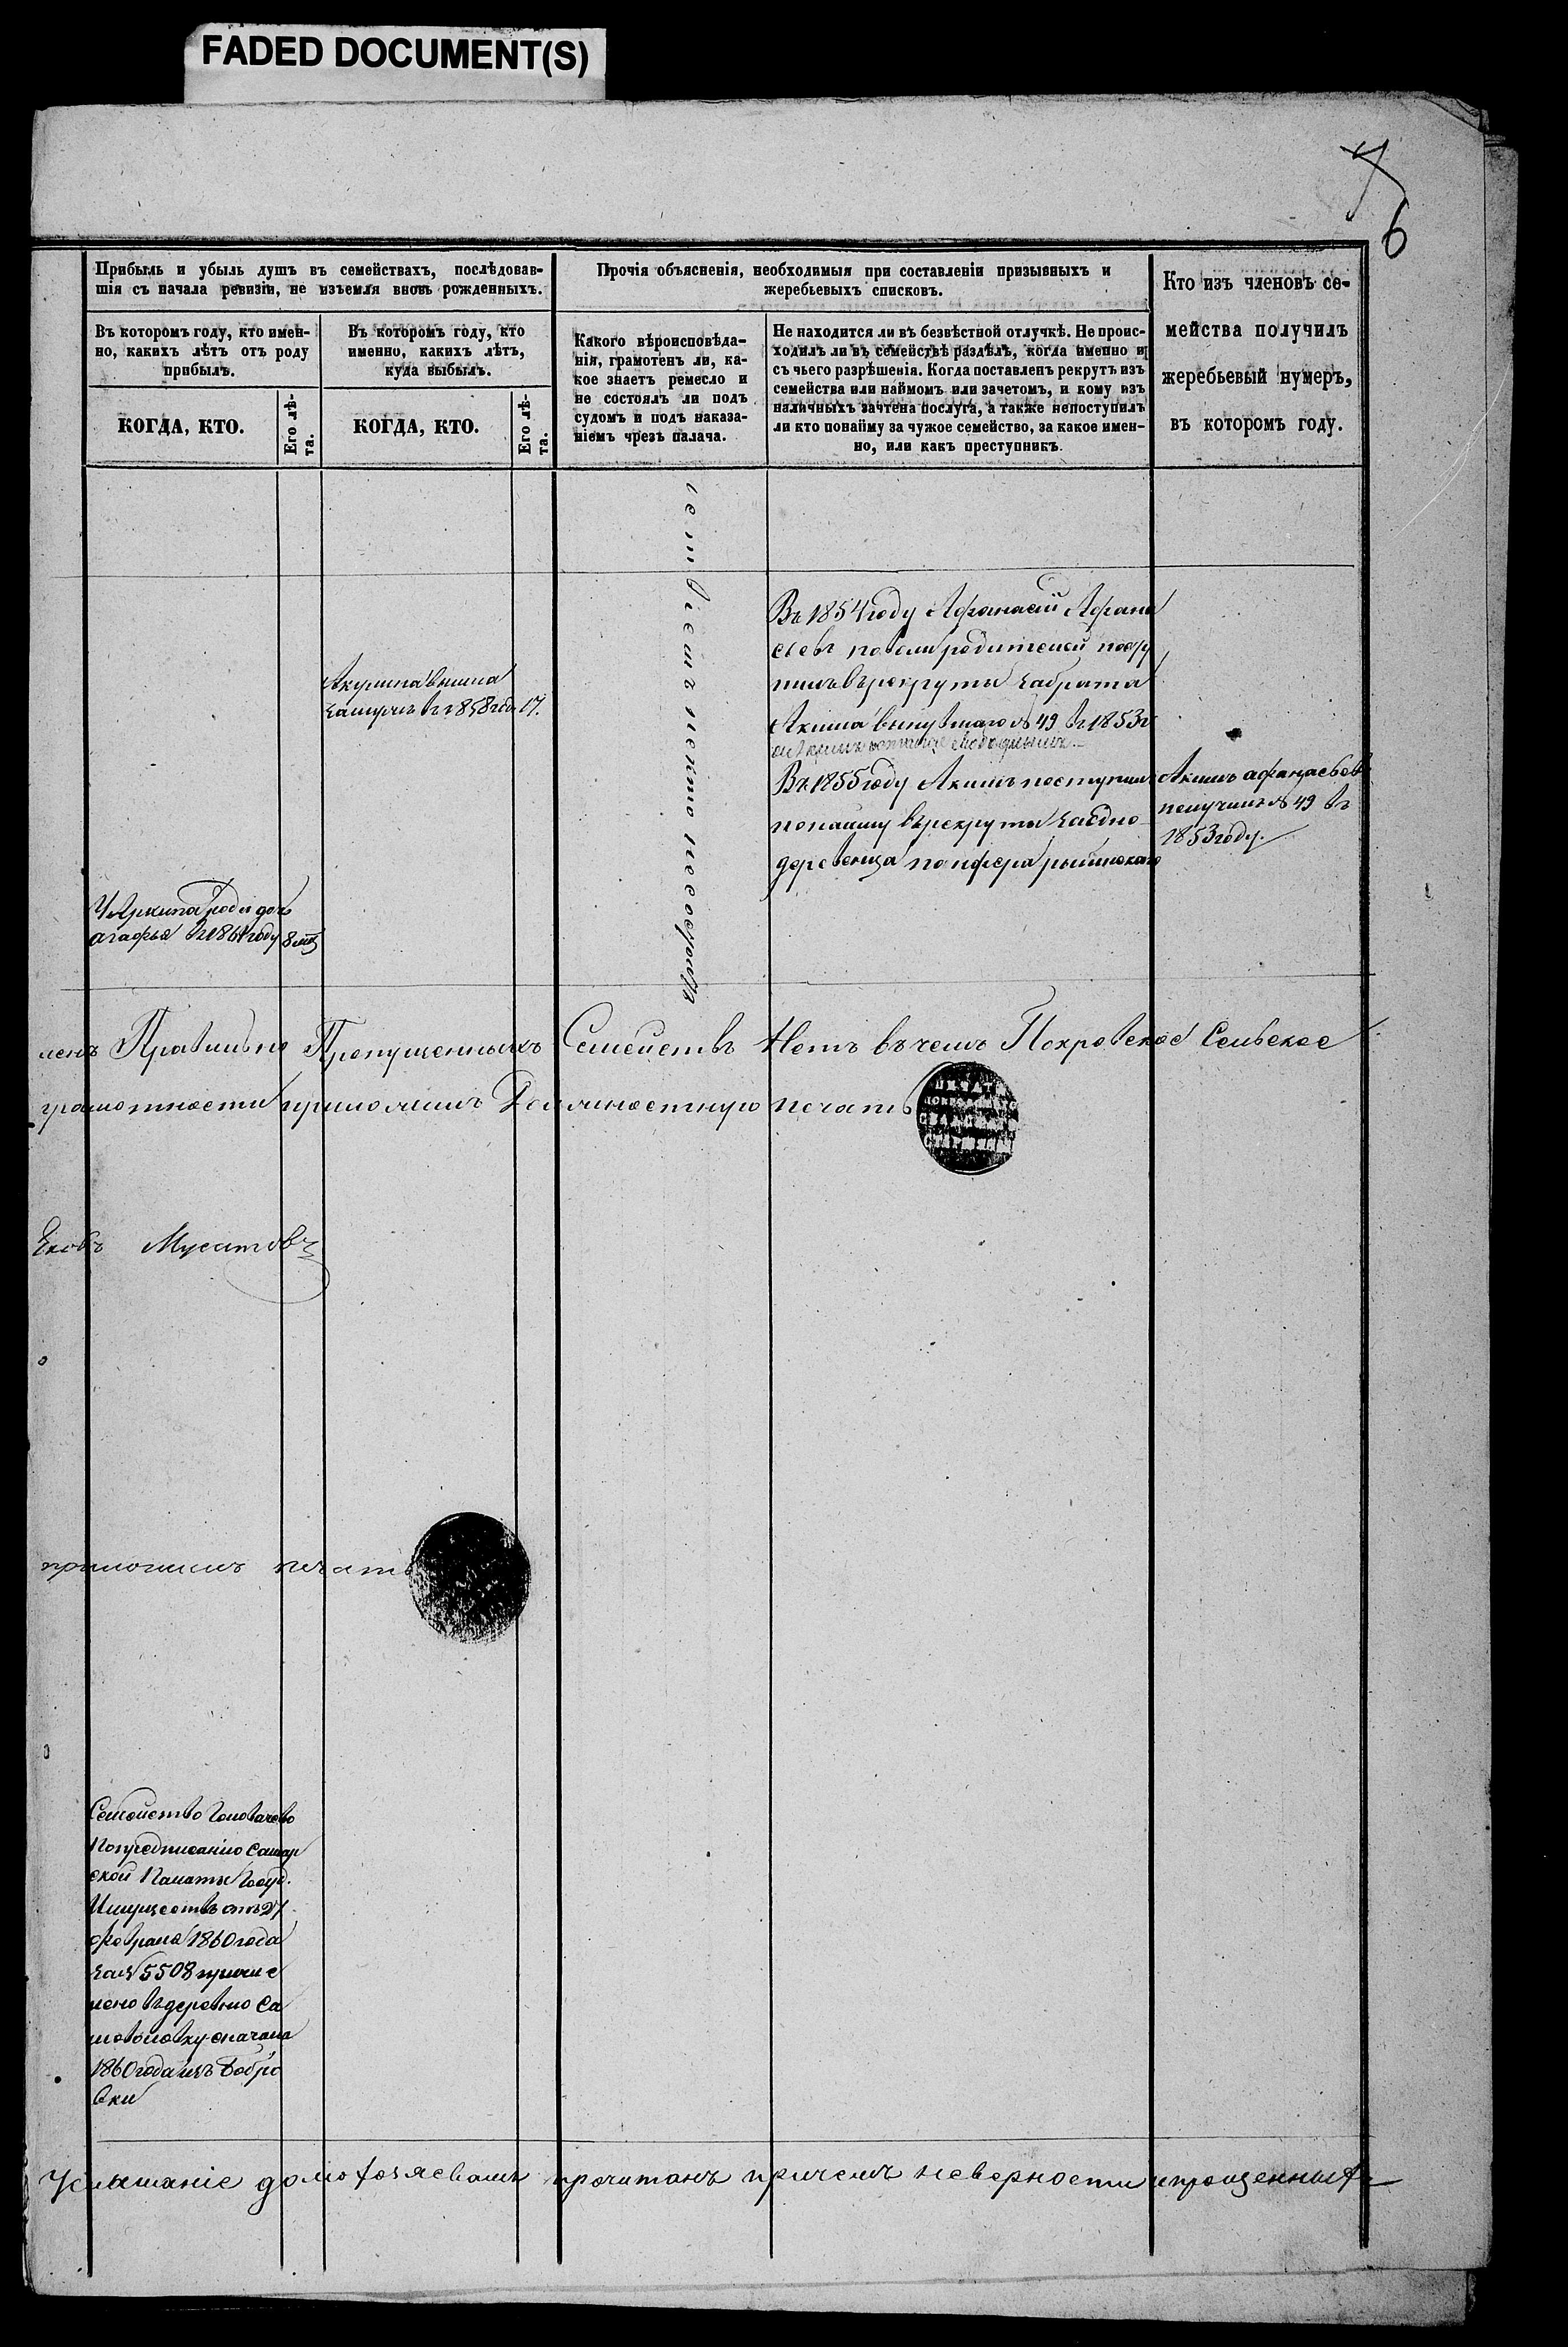 FADED DOCUMENT(S)
7
6
Прибыль и убыль душъ въ семействахъ, послѣдовав-
шія съ начала ревизіи, не изъемля вновь рожденныхъ.
Прочія объясненія, необходимыя при составленіи призывныхъ и
жеребьевыхъ списковъ.
Кто изъ членовъ се-
мейства получилъ
жеребьевый нумеръ,
въ которомъ году.
Въ которомъ году, кто имен-
но, какихъ лѣтъ отъ роду
прибылъ.
Въ которомъ году, кто
именно, какихъ лѣтъ,
куда выбылъ.
Какого вѣроисповѣда-
нія, грамотенъ ли, ка-
кое знаетъ ремесло и
не состоялъ ли подъ
судомъ и подъ наказа-
ніемъ чрезъ палача.
Не находится ли въ безвѣстной отлучкѣ. Не проис-
ходилъ ли въ семействѣ раздѣлъ, когда именно и
съ чьего разрѣшенія. Когда поставленъ рекрутъ изъ
семейства или наймомъ или зачетомъ, и кому изъ
наличныхъ зачтена послуга, а также непоступилъ
ли кто понайму за чужое семейство, за какое имен-
но, или какъ преступникъ.
КОГДА, КТО.
Его лѣ-
та.
КОГДА, КТО.
Его лѣ-
та.
ствіемъ некто несостоитъ
Въ 1854 году Афанасій Афана
сьевъ поволи родителей посту
пилъ врекруты забрата
Акима вынувшаго № 49 въ 1853 г
Въ 1855 году Акимъ поступилъ
понайму врекруты заодно
деревенца
Акулина вышла
замужъ въ 1858 году 17.
Акимъ афанасьевъ
получилъ № 49 въ
1853 году.
родил дочь
агафья въ 1861 году 8 мѣ
ленъ Правильно Пропущенныхъ Семействъ Нетъ въ чемъ Покровское Сельское
грамотности приложилъ Должностную печать
ПЕЧАТЬ
Мусатовъ
приложилъ печать
Семейство Головачево
Попредписанію Самар
ской Палаты Госуд.
Имуществъ отъ 27
февраля 1860 года
за № 5508 причис
лено въ деревню Са
моволовку сначала
1860 года изъ Бобро
вки
Услышаніе домохозяевамъ прочитанъ причемъ неверности